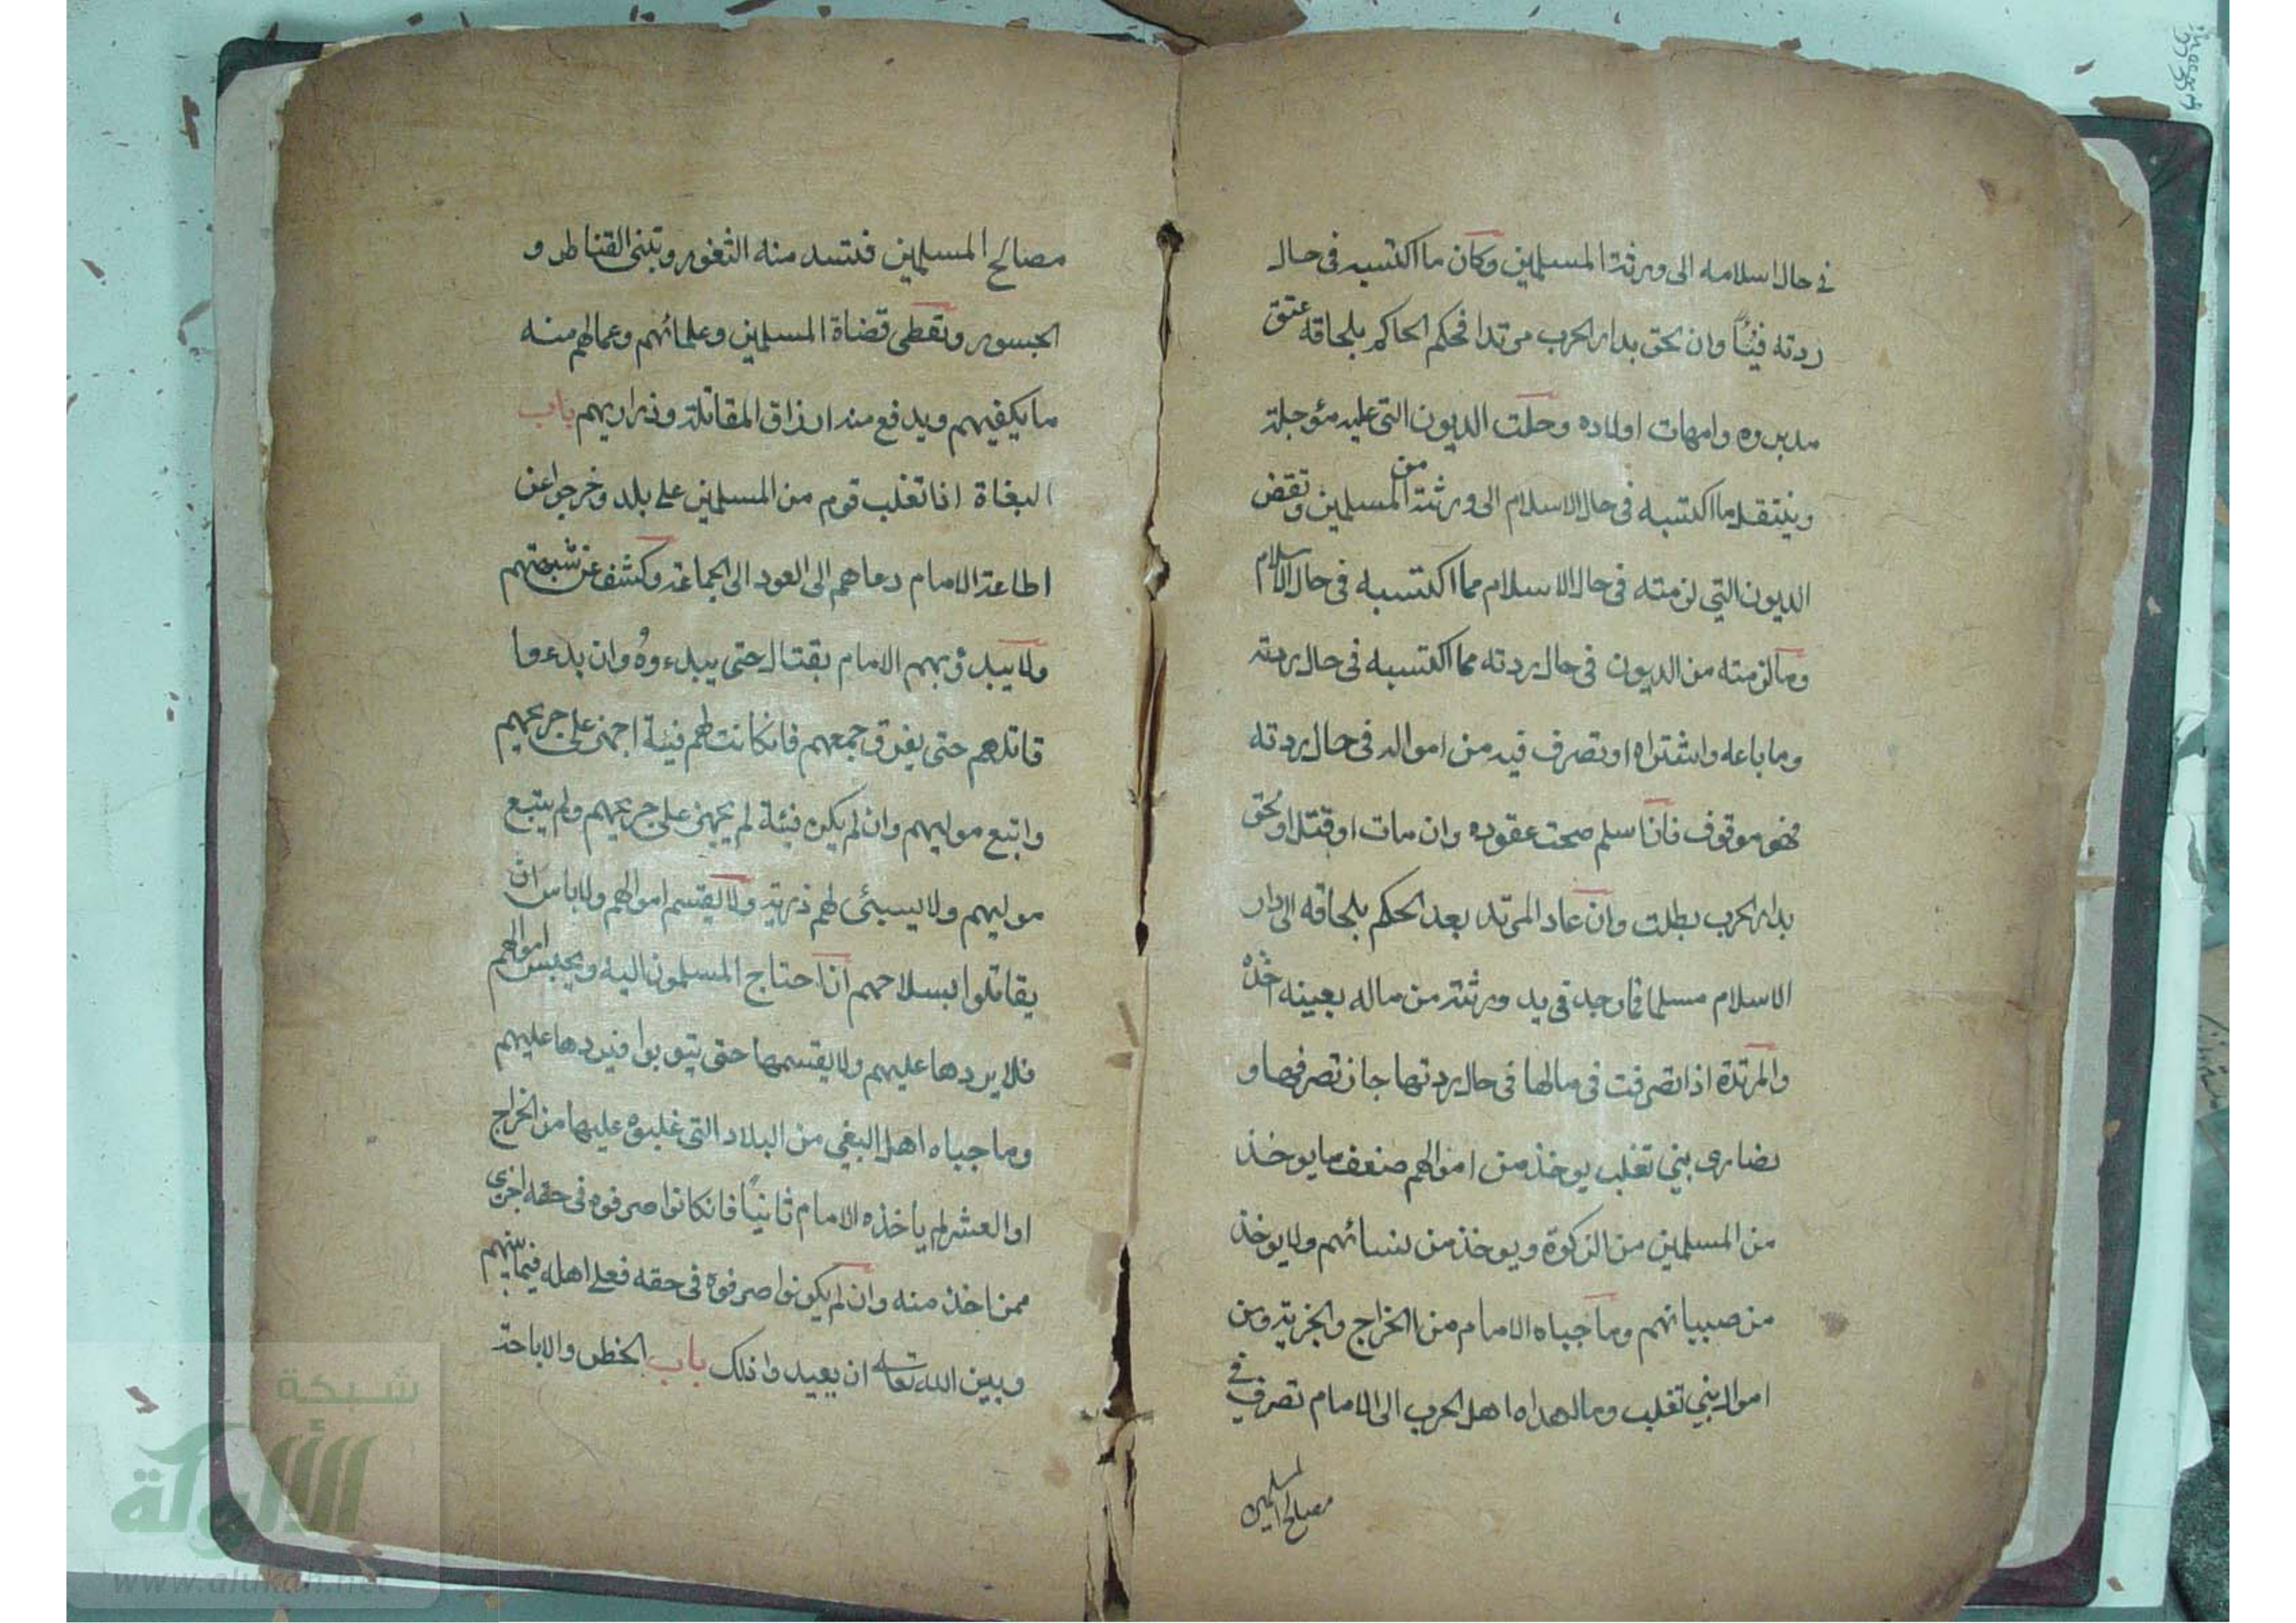 في حال اسلامه الى ورثته المسلمين وكان ما اكتسبه فى حال
ردته فيئاً وان لحق بدار الحرب مرتدا فحكم الحاكم بلحاقه عتق
مدبروه وامهات اولاده وحلت الديون التى عليه مؤجلة
وينتقل ما اكتسبه فى حال الاسلام الى ورثته من المسلمين وتقض
الديون التي لزمته فى حال الاسلام مما اكتسبه فى حال الاسلام
وما لزمته من الديون فى حال ردته مما اكتسبه فى حال ردته
وما باعه واشتراه او تصرف فيه من امواله فى حال ردته
فهو موقوف فان اسلم صحت عقوده وان مات او قتل او لحق
بدار الحرب بطلت وان عاد المرتد بعد الحكم بلحاقه الى دار
الاسلام مسلما فما وجد في يد ورثته من ماله بعينه اخذه
والمرتدة اذا تصرفت فى مالها فى حال ردتها جاز تصرفها و
نصارى بني تغلب يوخذ من اموالهم ضعف ما يوخذ
من المسلمين من الزكوة ويوخذ من نسائهم ولا يوخذ
من صبيانهم وما جباه الامام من الخراج والجزية ومن
اموال بني تغلب وما اهداه اهل الحرب الى الامام تصرف في
مصالح المسلمين
مصالح المسلمين فتسد منه الثغور وتبنى القناطر و
الجسور وتقطى قضاة المسلمين وعلمائهم وعمالهم منه
ما يكفيهم ويدفع منه ارزاق المقاتلة وذراريهم باب
البغاة اذا تغلب قوم من المسلمين على بلد وخرجوا عن
اطاعة الامام دعاهم الى العود الى الجماعة وكشف عن شبهتهم
ولا يبدؤ بهم الامام بقتال حتى يبدءوه وان بدءوا
قاتلهم حتى يفرق جمعهم فانكانت لهم فيئة اجهز على جريحهم
واتبع موليهم وان لم يكن فيئة لم يجهز على جريحهم ولم يتبع
موليهم ولا يسبئى لهم ذرية ولا يقتسم اموالهم ولا باس ان
يقاتلوا بسلاحهم اذا احتاج المسلمون اليه ويحبس اموالهم
فلا يردها عليهم ولا يقتسمها حتى يتوبوا فيردها عليهم
وما جباه اهل البغي من البلاد التى غلبوه عليها من الخراج
او العشر لم ياخذه الامام ثانياً فانكانوا صرفوه فى حقه اجزى
ممن اخذ منه وان لم يكونوا صرفوه فى حقه فعلى اهله فيما بينهم
وبين الله تعالى ان يعيدوا ذلك باب الخطر والاباحة
شبكة
الألوكة
www.alukah.net